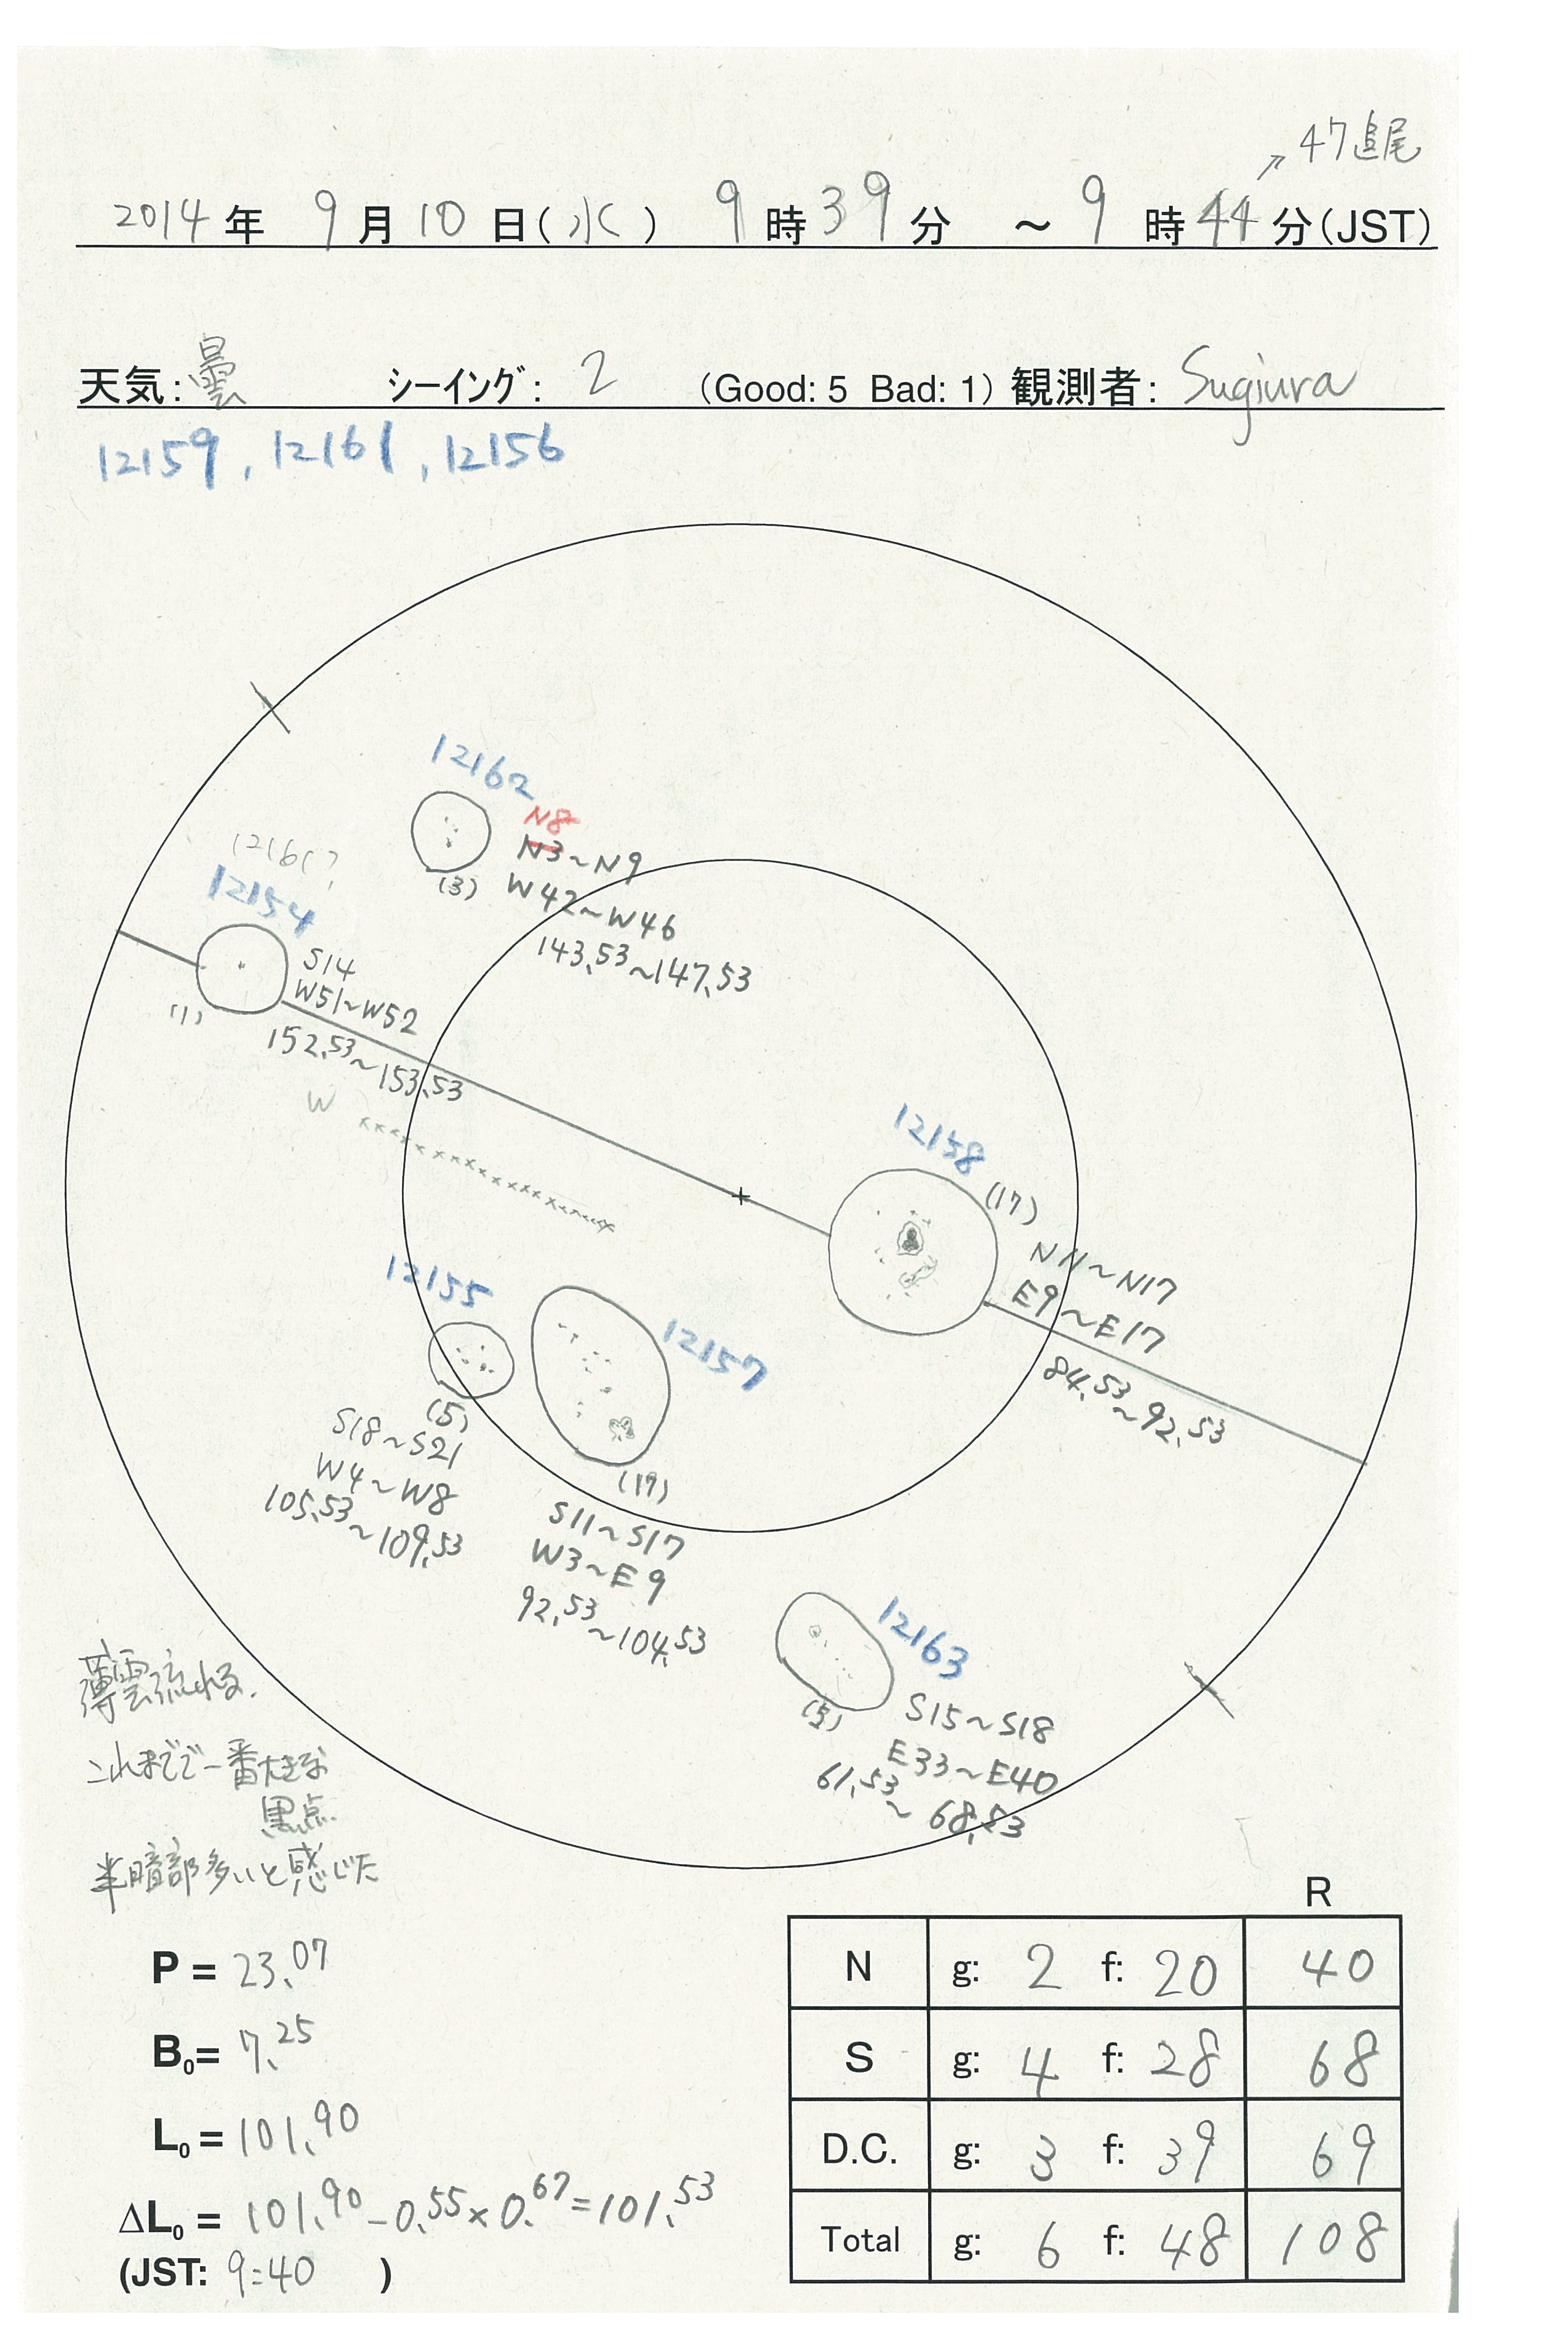 47追尾
2014年 9月10日(水) 9時39分 ～9時44分(JST)
天気:曇 シーイング: 2 (Good: 5 Bad: 1) 観測者: Sugiura
12159, 12161, 12156
12162
N8
N3~N9
W42~W46
143.53~147.53
(3)
12161?
12154
S14
W51~W52
152.53~153.53
(1)
W
12158
(17)
N11~N17
E9~E17
84.53~92.53
12155
(5)
S18~S21
W4~W8
105.53~109.53
12157
(17)
S11~S17
W3~E9
92.53~104.53
12163
(5)
S15~S18
E33~E40
61.53~68.53
薄雲流れる.
これまでで一番大きな
黒点.
半暗部多いと感じた
P = 23.07
B0= 7.25
L0 = 101.90
ΔL0 = 101.90-0.55×0.67=101.53
(JST: 9:40 )
R
N g: 2 f: 20 40
S g: 4 f: 28 68
D.C. g: 3 f: 39 69
Total g: 6 f: 48 108